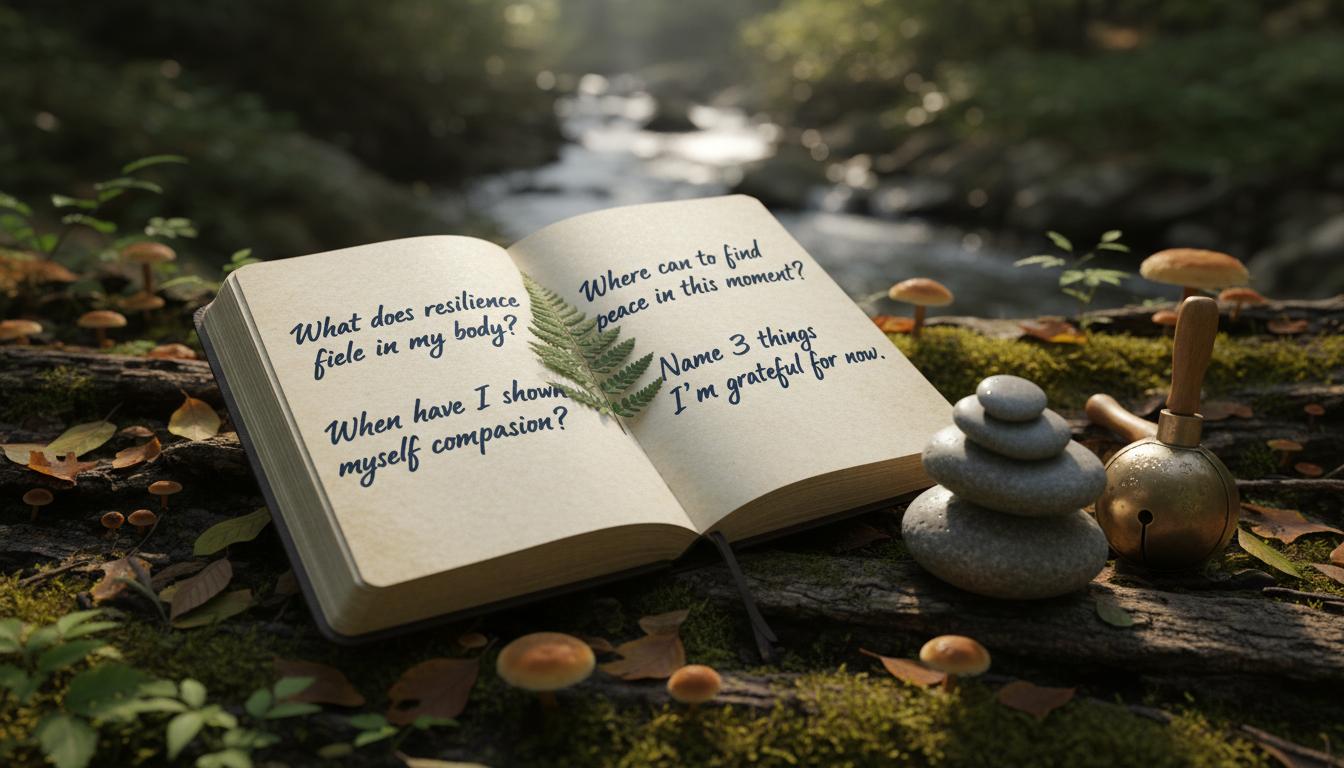 What does resilience
fiele in my body?
When have I shown
myself compasion?
Where can to find
peace in this moment?
Name 3 things
I'm grateful for now.